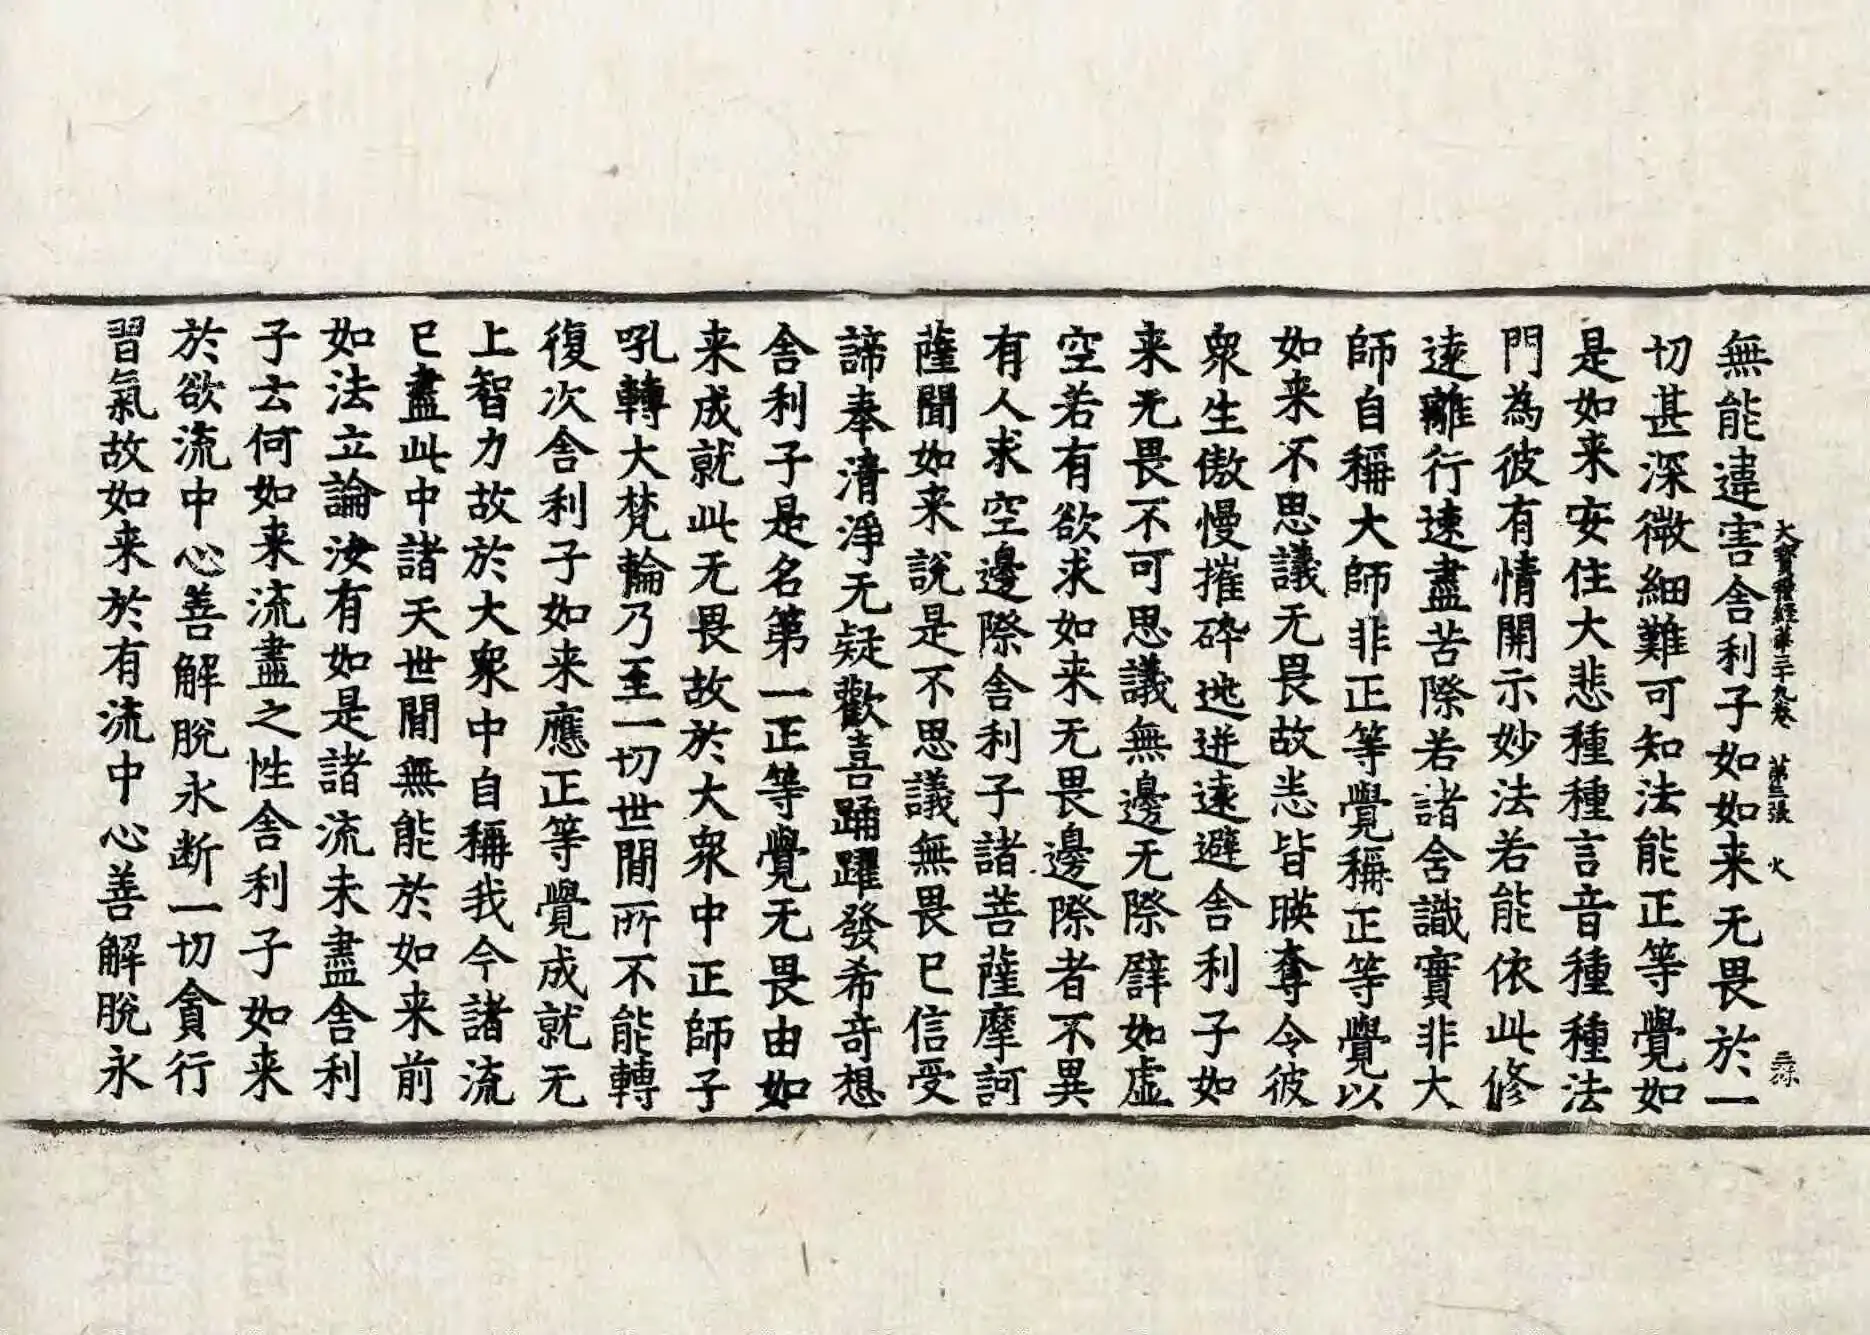 大寶積經第三十九卷 第三張 火
無能違害舍利子如如来无畏於一
切甚深微細難可知法能正等覺如
是如来安住大悲種種言音種種法
門為彼有情開示妙法若能依此修
遠離行速盡苦際若諸舍識實非大
師自稱大師非正等覺稱正等覺以
如来不思議无畏故悉皆暎奪令彼
衆生傲慢摧碎迯迸遠避舍利子如
来无畏不可思議無邊无際譬如虛
空若有欲求如来无畏邊際者不異
有人求空邊際舍利子諸菩薩摩訶
薩聞如来說是不思議無畏已信受
諦奉清淨无疑歡喜踊躍發希奇想
舍利子是名第一正等覺无畏由如
来成就此无畏故於大衆中正師子
吼轉大梵輪乃至一切世間所不能轉
復次舍利子如来應正等覺成就无
上智力故於大衆中自稱我今諸流
已盡此中諸天世間無能於如来前
如法立論汝有如是諸流未盡舍利
子云何如来流盡之性舍利子如来
於欲流中心善解脫永断一切貪行
習氣故如来於有流中心善解脫永